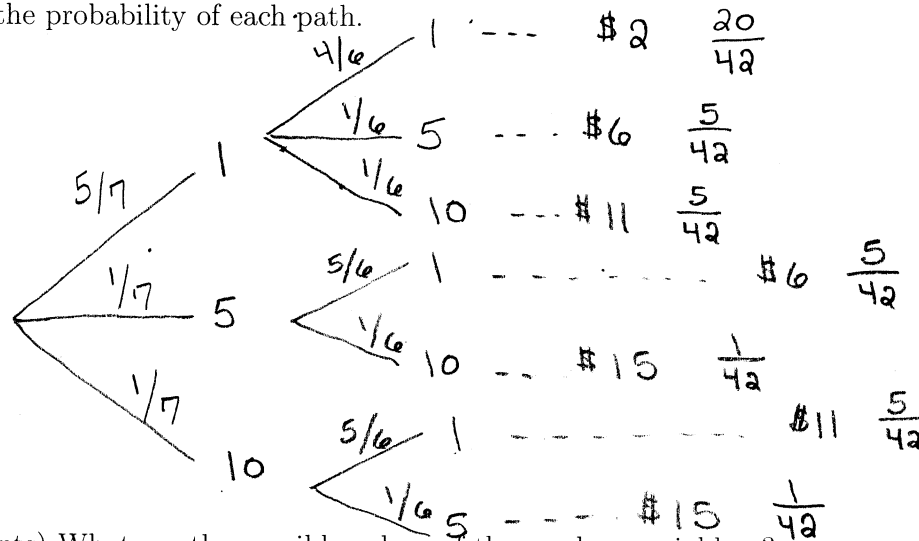 the probability of each path.
4/6 1 --- $2 20/42
1/6 5 --- $6 5/42
5/7 1
1/6 10 --- $11 5/42
5/6 1 -------- $6 5/42
1/7 5
1/6 10 -- $15 1/42
1/7 10
5/6 1 -------- $11 5/42
1/6 5 ---- $15 1/42